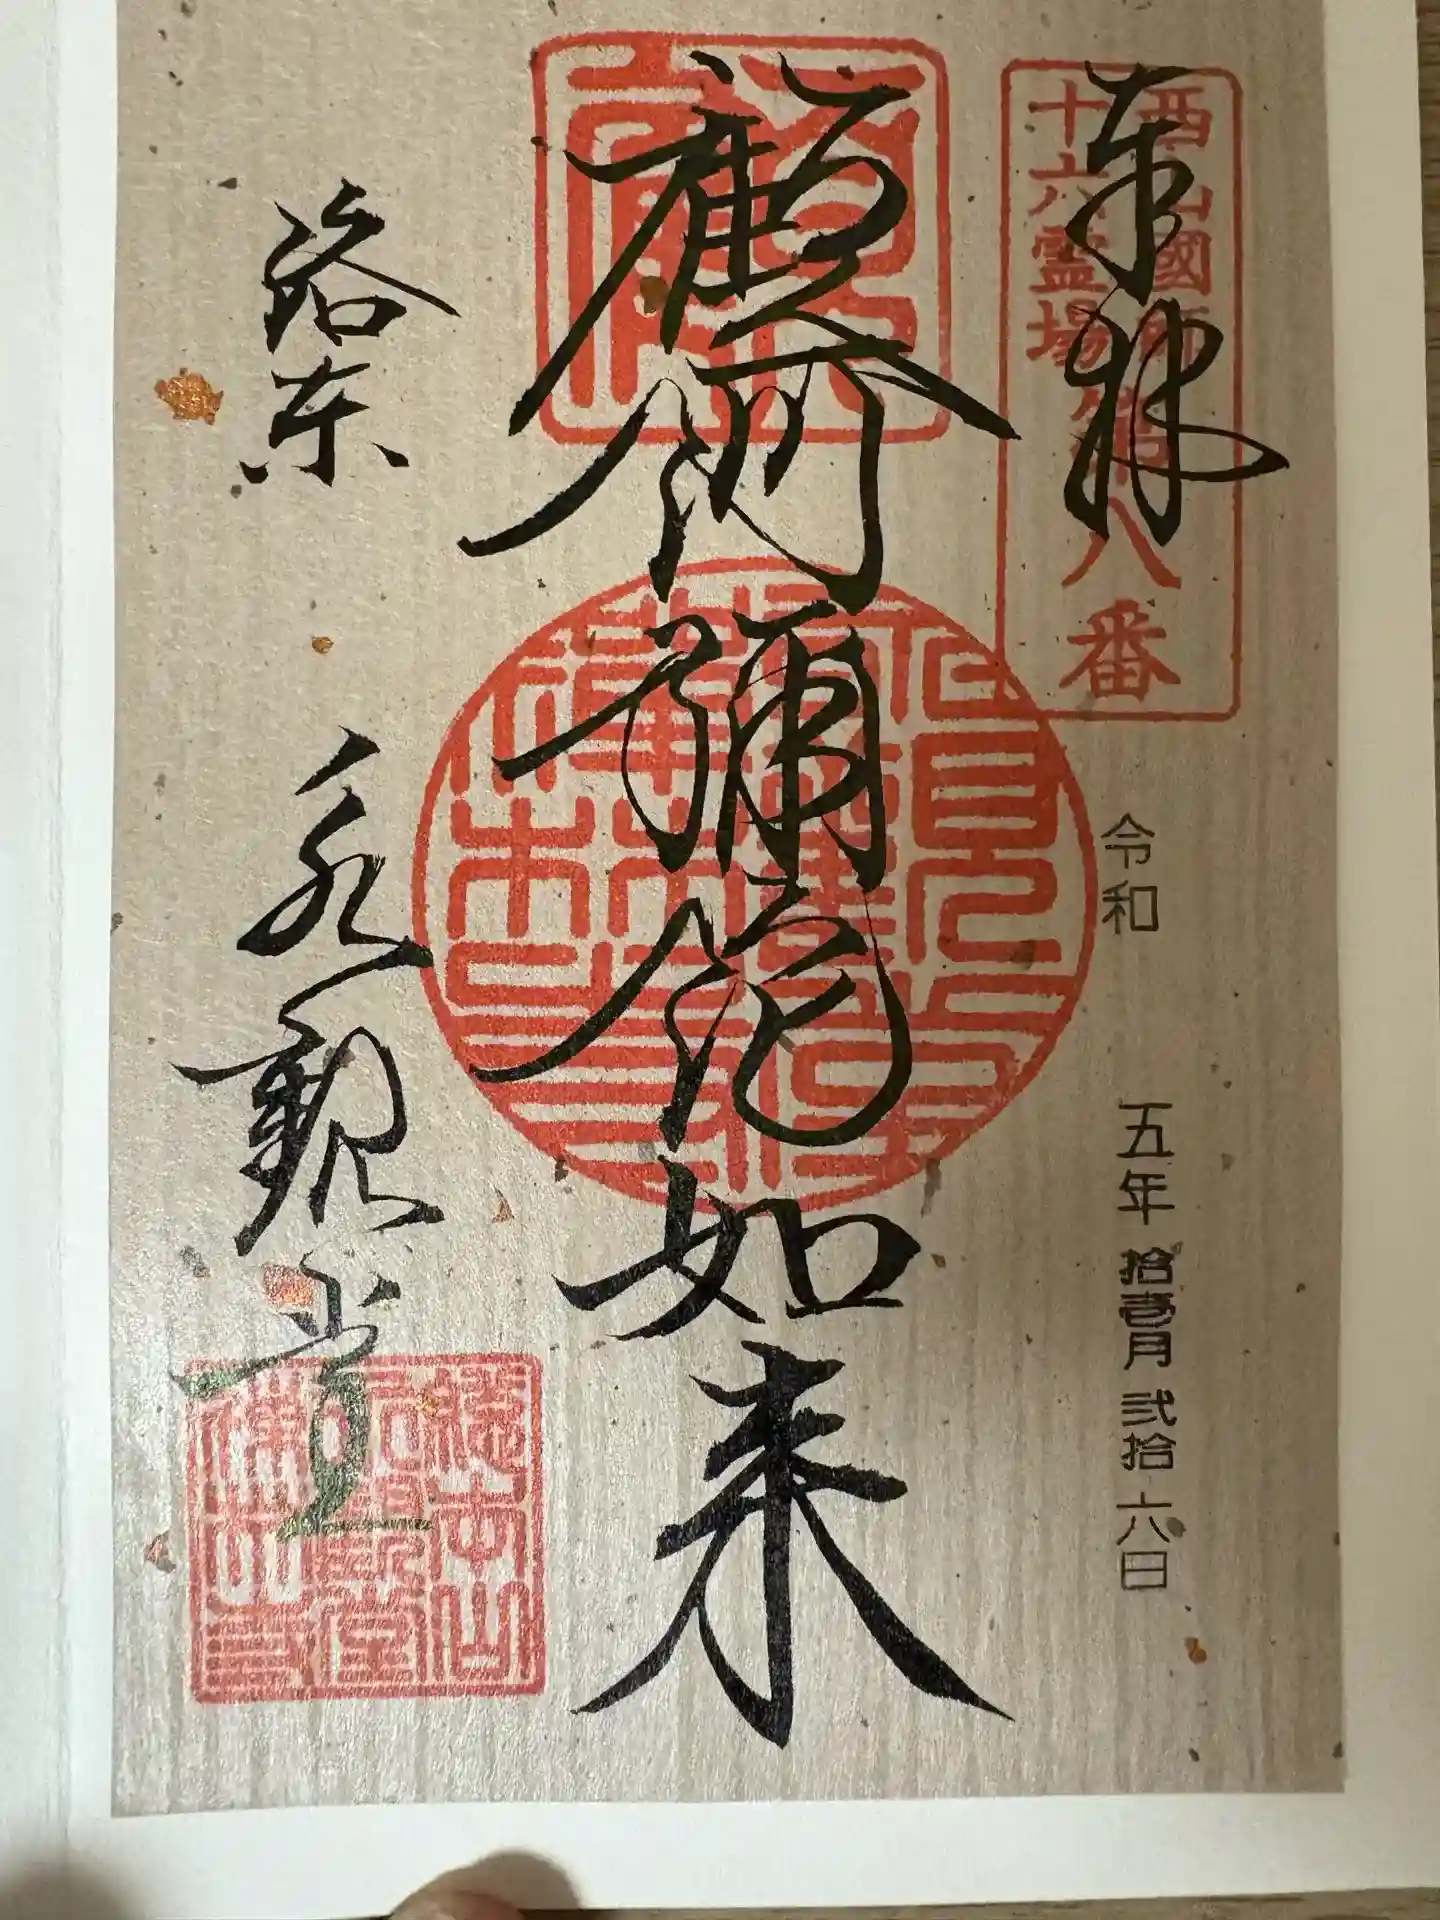 奉拝
西山國師
十六霊場
第八番
令和 五年 拾壹月 弐拾六日
顧阿彌陀如来
洛東 永觀堂